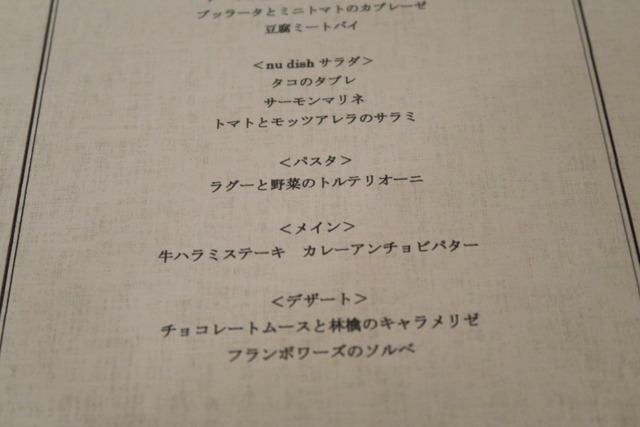 ブッラータとミニトマトのカプレーゼ
豆腐ミートパイ
＜nu dish サラダ＞
タコのタブレ
サーモンマリネ
トマトとモッツアレラのサラミ
＜パスタ＞
ラグーと野菜のトルテリオーニ
＜メイン＞
牛ハラミステーキ　カレーアンチョビバター
＜デザート＞
チョコレートムースと林檎のキャラメリゼ
フランボワーズのソルベ